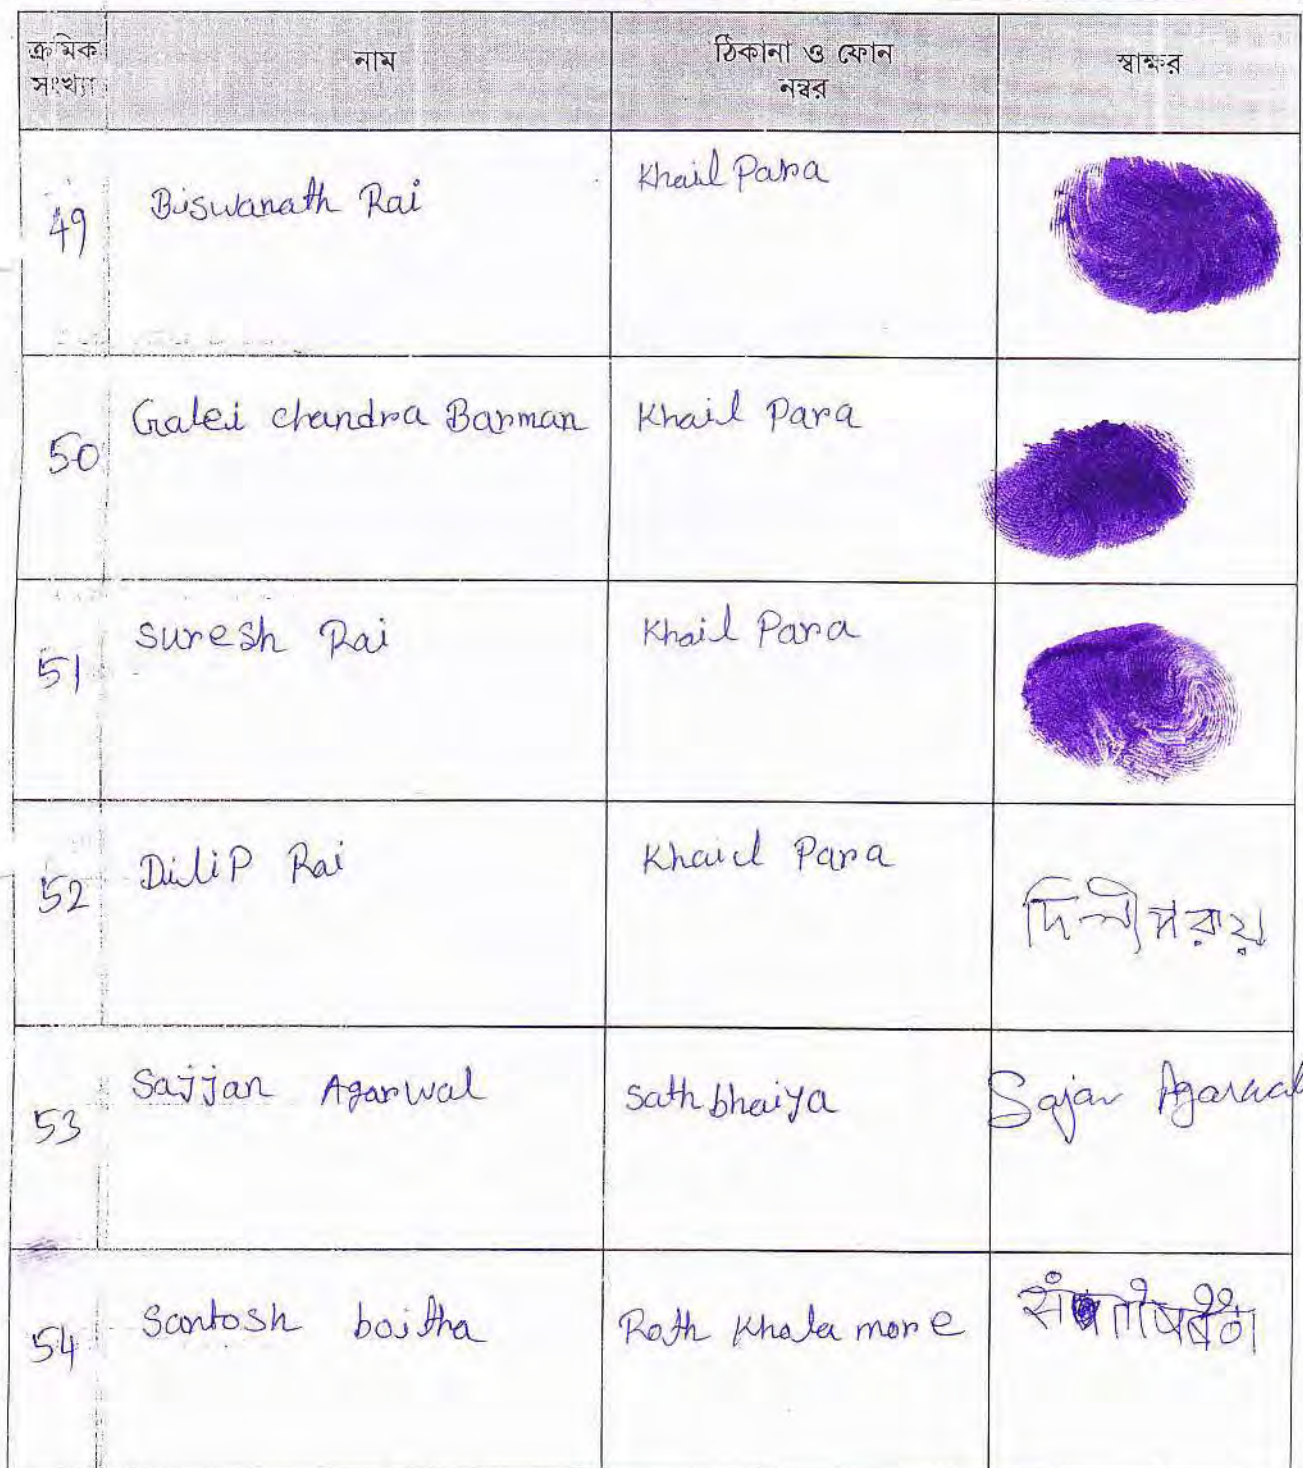 ক্রমিক সংখ্যা নাম ঠিকানা ও ফোন নম্বর স্বাক্ষর
49 Biswanath Rai Khail Para
50 Galei chandra Barman Khail Para
51 Suresh Rai Khail Para
52 DiliP Rai Khail Para দিলীপ রায়
53 Sajjan Agarwal Sathbhaiya Sajan Agarwal
54 Santosh boitha Roth Khola more